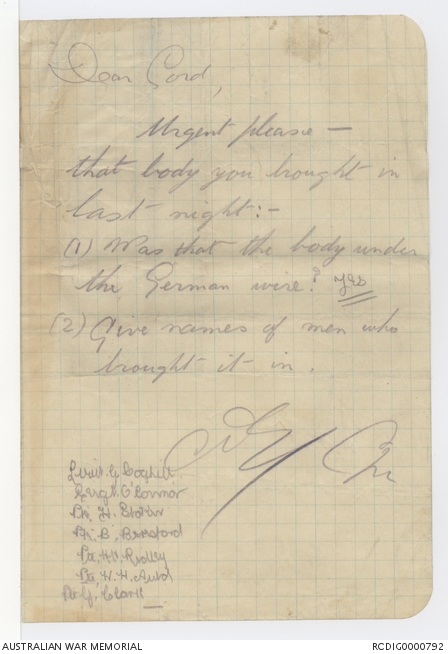 Dear Gord,
Urgent please —
that body you brought in
last night:-
(1) Was that the body under
the German wire? Yes
(2) Give names of men who
brought it in.
Lieut. G Doghett
Sergt. O'Connor
Pte. H.
Pte. B. Beresford
Pte. H. Ridley
Pte. H. H. Auld
Pte G. Clark
AUSTRALIAN WAR MEMORIAL
RCDIG0000792